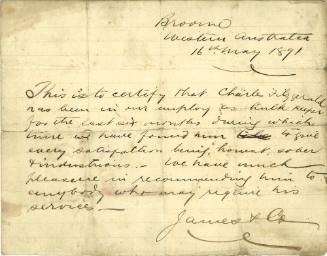 Broome
Western Australia
16th May 1891
This is to certify that Charles Fitzgerald
has been in our employ as bulk keeper
for the last six months during which
time we have found him to give
every satisfaction being honest, sober
& industrious. — We have much
pleasure in recommending him to
anybody who may require his
services —
James & Co